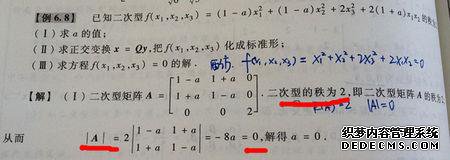 【例6.8】 已知二次型f(x₁,x₂,x₃) = (1-a)x₁² + (1-a)x₂² + 2x₃² + 2(1+a)x₁x₂的秩为
(Ⅰ)求a的值;
(Ⅱ)求正交变换x = Qy,把f(x₁,x₂,x₃)化成标准形;
(Ⅲ)求方程f(x₁,x₂,x₃) = 0的解.
f(x₁,x₂,x₃) = x₁²+x₂²+2x₃²+2x₁x₂=0
【解】 (Ⅰ)二次型矩阵A = [1-a 1+a 0; 1+a 1-a 0; 0 0 2]. 二次型的秩为2,即二次型矩阵A的秩为2
=2 |A|=0
从而 |A| = 2 |1-a 1+a; 1+a 1-a| = -8a = 0,解得a = 0.
内容来自
www.shuoshuokong.com